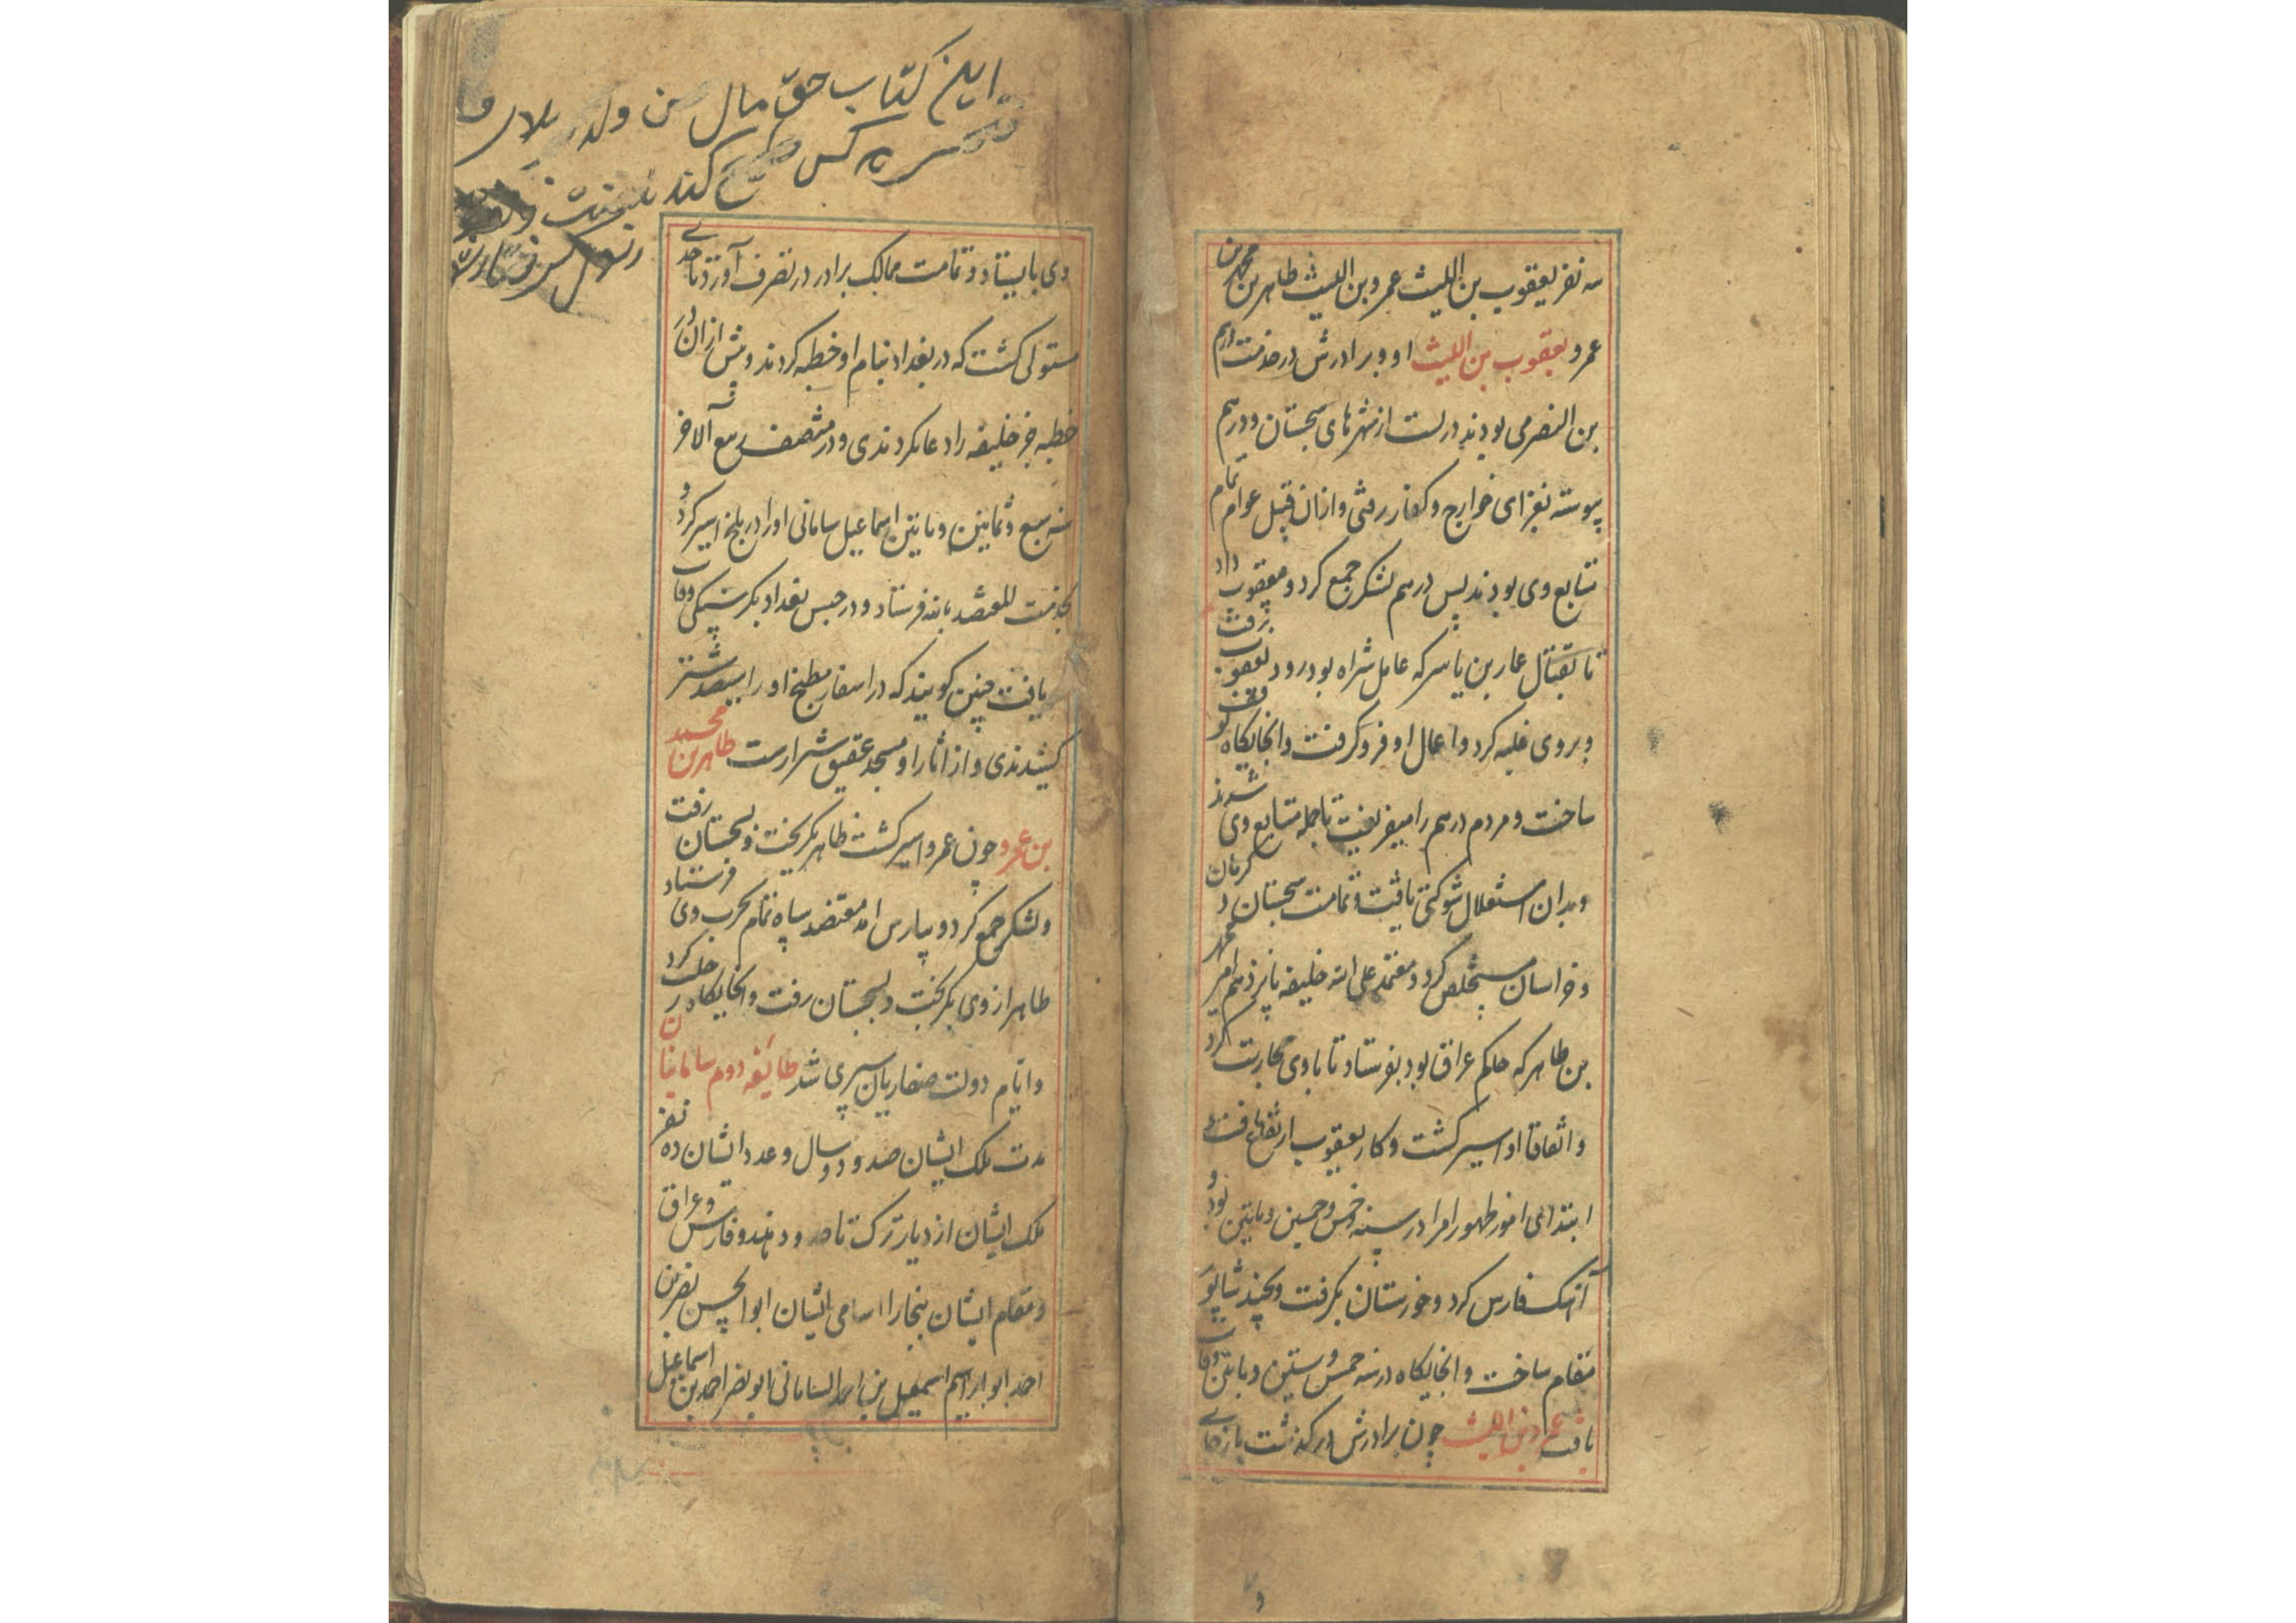 سه نفر یعقوب بن اللیث عمرو بن اللیث طاهر بن محمد بن
عمرو یعقوب بن اللیث او و برادرش در خدمت درهم
بن النصر می بودند در بست از شهرهای سجستان و درهم
پیوسته بغزای خوارج و کفار رفتی و ازان قبل عوام تمام
متابع وی بودند پس درهم لشکر جمع کرد و بیعقوب داد
تا بقتال عمار بن یاسر که عامل شراه بود رود یعقوب برفت
و بروی غلبه کرد و اعمال او فرو گرفت و انجایگاه
ساخت و مردم درهم را میفریفت تا جمله متابع وی شدند
و بدان استقلال شوکتی یافت و تمامت سجستان و کرمان
و خراسان مستخلص کرد و معتمد علی الله خلیفه پانزدهم امیر محمد
بن طاهر که حاکم عراق بود بفرستاد تا با وی محاربت کرد
و اتفاقا او اسیر گشت و کار یعقوب ارتفاع یافت و
ابتدای امور ظهور امرا در سنه خمس و خمسین و مایتین بود و
آهنک فارس کرد و خوزستان بگرفت و بجند شاپور
مقام ساخت و انجایگاه در سنه خمس و ستین و مایتین وفات
یافت عمرو بن اللیث چون برادرش در گذشت باز جای
این کتاب حق مال من ولد
هر کس طمع کند بلعنت
وی بایستاد و تمامت ممالک برادر در تصرف آورد تا حدی
مستولی کشت که در بغداد بنام او خطبه کردند و پیش ازان در
خطبه جز خلیفه را دعا نکردندی و در منتصف ربیع الآخر
سنه سبع و ثمانین و مایتین اسماعیل سامانی او را در بلخ اسیر کرد و
بخدمت المعتضد بالله فرستاد و در حبس بغداد بکرسنکی وفات
یافت چنین کویند که در اسفار مطبخ او را سیصد شتر
کشیدندی و از اثار او مسجد عتیق شیرازست طاهر بن محمد
بن عمرو چون عمرو اسیر کشت طاهر بکریخت و بسجستان رفت
و لشکر جمع کرد و بپارس امد معتضد سپاه تمام بحرب وی فرستاد
طاهر از وی بکریخت و بسجستان رفت و انجایکاه در حلت کرد
و ایام دولت صفاریان سپری شد طایفه دوم سامانیان
مدت ملک ایشان صد و دو سال و عدد ایشان ده نفر
ملک ایشان از دیار ترک تا حدود هند و فارس و عراق
و مقام ایشان بخارا اسامی ایشان ابو الحسن نصر بن
احمد ابو ابراهیم اسمعیل بن احمد السامانی ابو نصر احمد بن اسماعیل